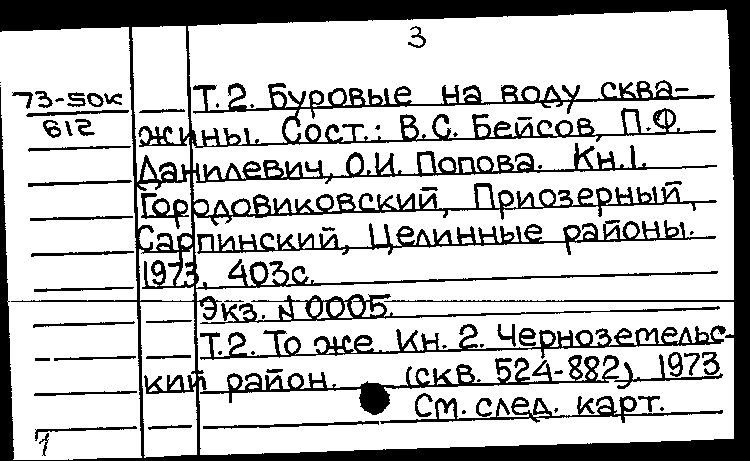 3
73-50к
612
Т.2. Буровые на воду сква-
жины. Сост.: В.С. Бейсов, П.Ф.
Данилевич, О.И. Попова. Кн.1.
Городовиковский, Приозерный,
Сарпинский, Целинные районы.
1973. 403с.
Экз. N 0005.
Т.2. То же. Кн. 2. Черноземельс-
кий район. (скв. 524-882). 1973
См. след. карт.